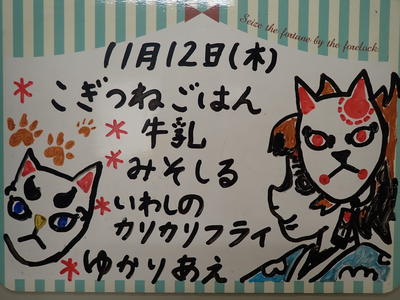 Seize the fortune by the forelock.
11月12日(木)
* こぎつねごはん
* 牛乳
* みそしる
* いわしの
カリカリフライ
* ゆかりあえ